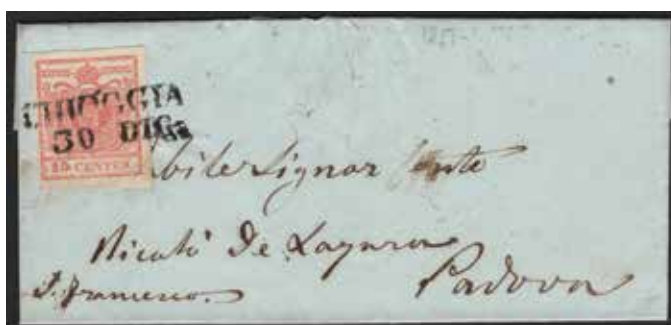 CHIOGGIA
30 DIC.
15 CENTES.
Nobile Signor Conte
Nicolò De Lazara
S. Francesco.
Padova